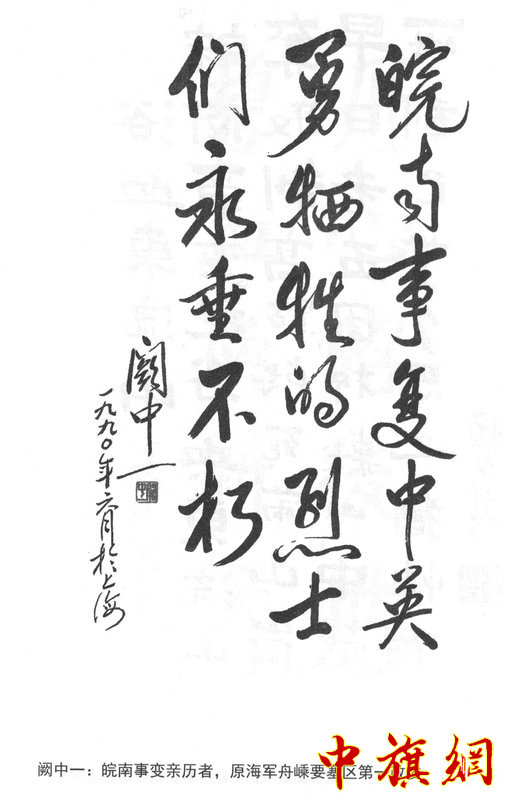 皖南事变中英
勇牺牲的烈士
们永垂不朽
阙中一
一九九〇年六月於上海
阙中一：皖南事变亲历者，原海军舟嵊要塞区第一政委
中旗網